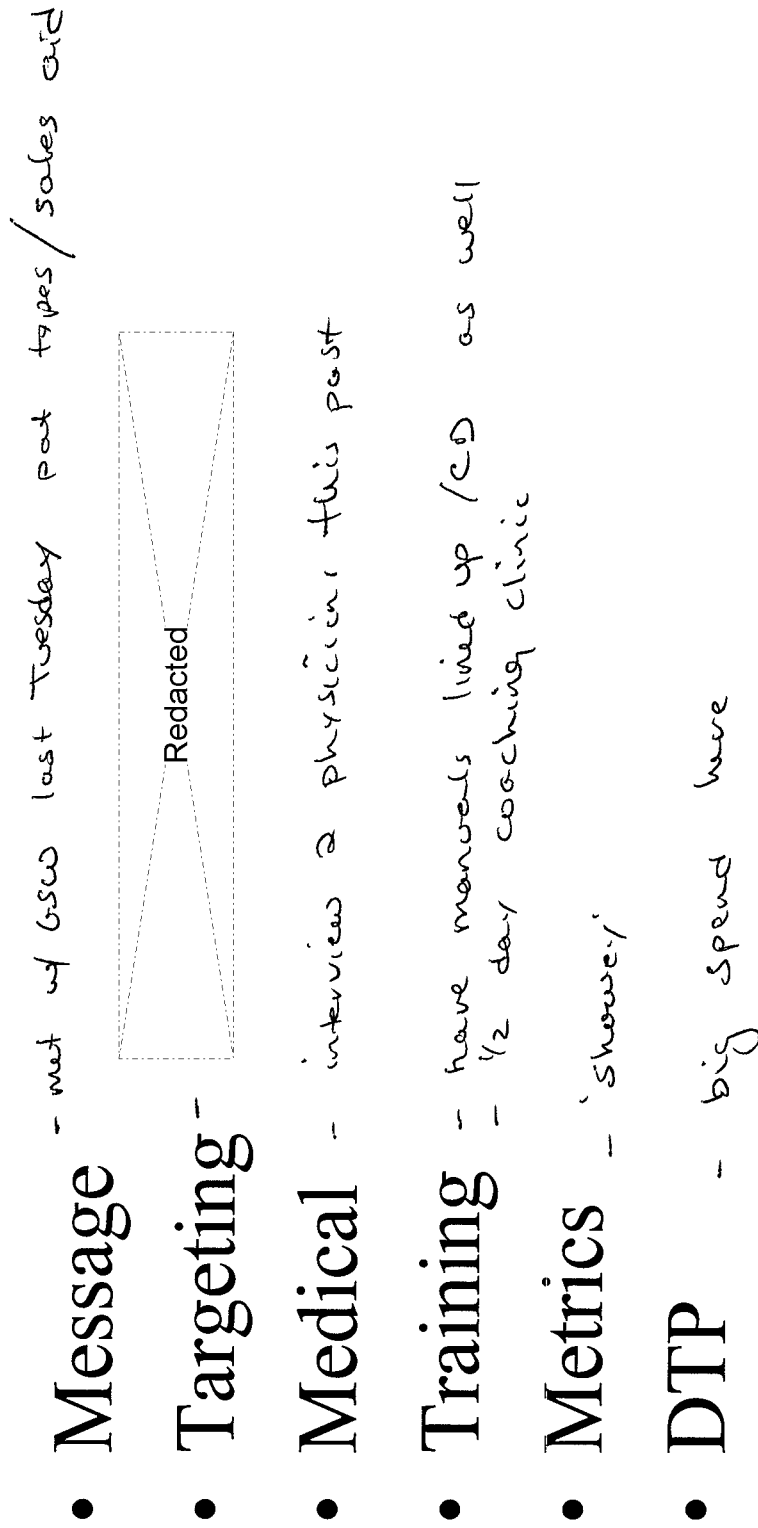 • Message - met w/ GSW last Tuesday pat tapes/sales aid
• Targeting - Redacted
• Medical - interview 2 physicians this past
• Training - have manuals lined up /CD as well
- 1/2 day coaching clinic
• Metrics -
• DTP - big spend here